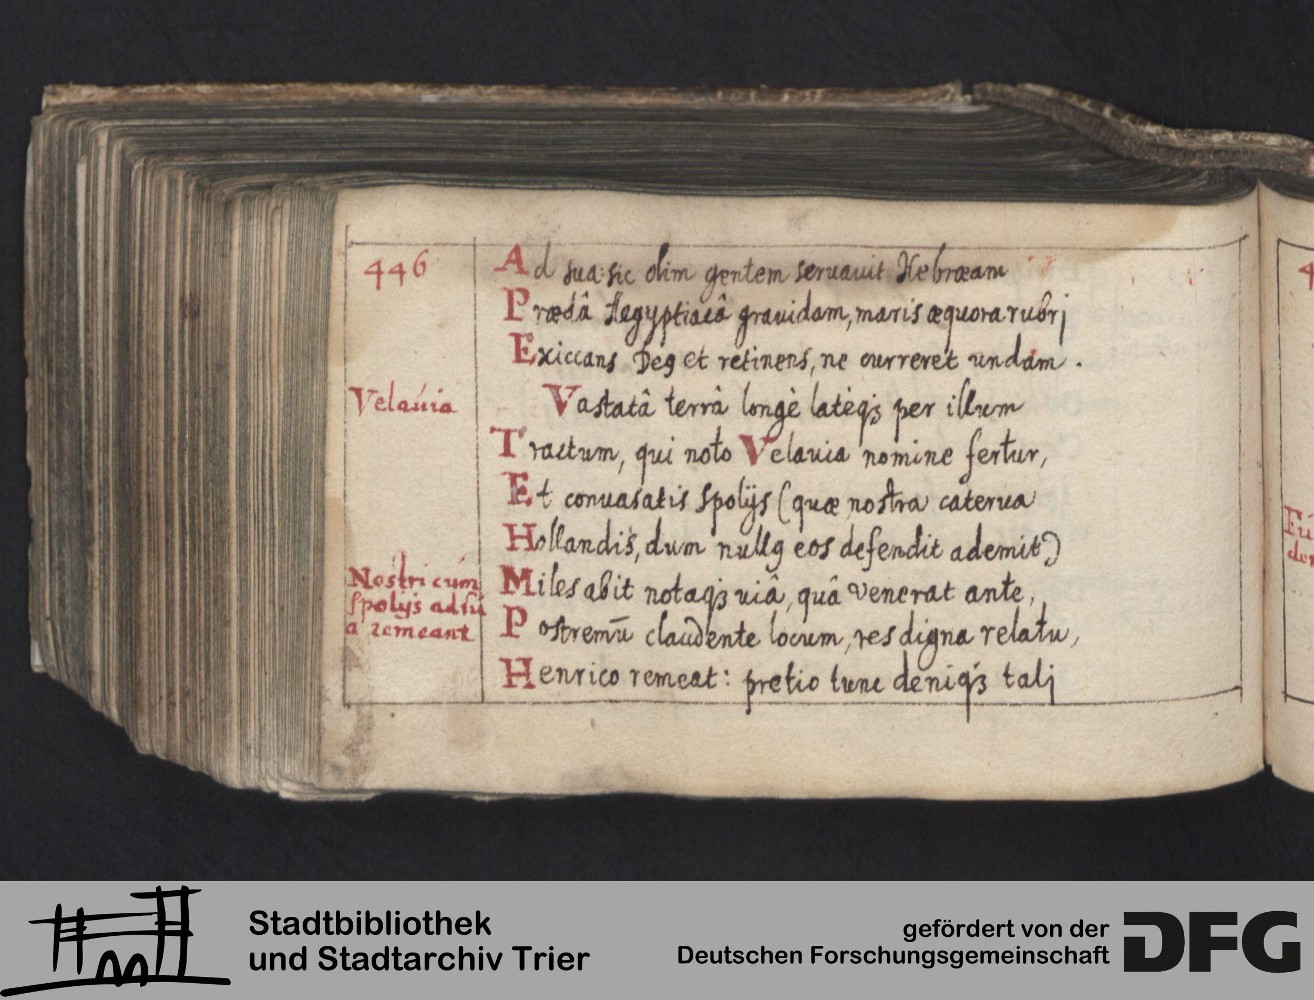 446
Ad sua: sic olim gentem seruauit Hebræam
Prædâ Aegyptiacâ grauidam, maris æquora rubrj
Exiccans Deꝯ et retinens, ne curreret undam.
Velauia
Vastatâ terrâ longè latèqꝫ per illum
Tractum, qui noto Velauia nomine fertur,
Et conuasatis spolijs (quæ nostra caterua
Hollandis, dum nullꝯ eos defendit ademit)
Nostri cum
spolijs ad su
a remeant
Miles abit notaqꝫ uiâ, quâ venerat ante,
Postremū claudente locum, res digna relatu,
Henrico remeat: pretio tunc deniqꝫ talj
Stadtbibliothek
und Stadtarchiv Trier
gefördert von der
Deutschen Forschungsgemeinschaft
DFG